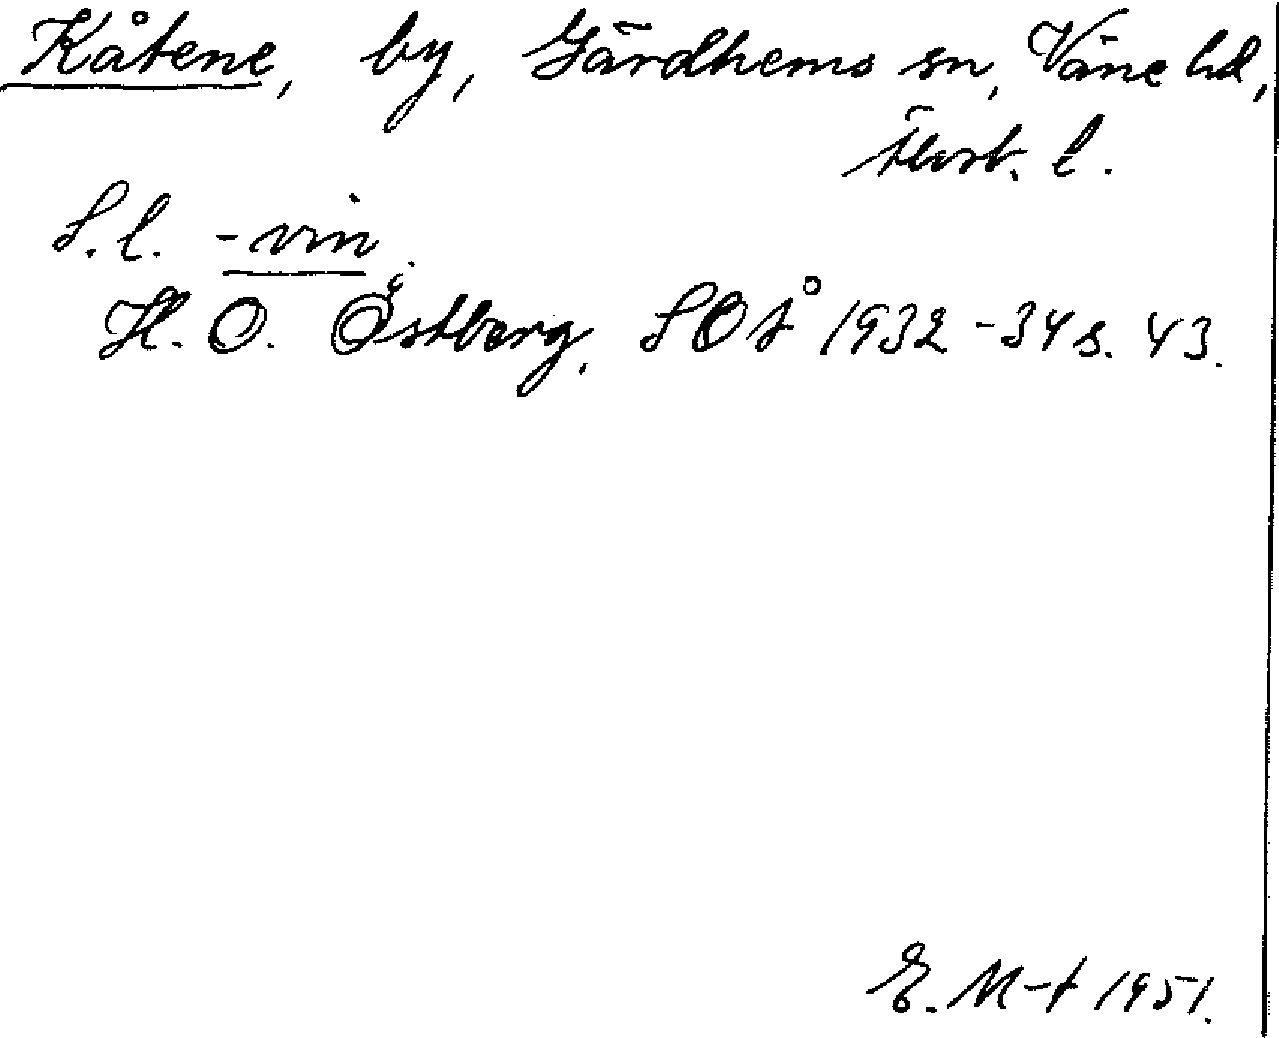 Kåtene, by, Gärdhems sn, Väne hd,
Älvsb. l.
S.l. -vin.
H. O. Östberg, SOÅ 1932-34 s. 43.
E. M-t 1951.